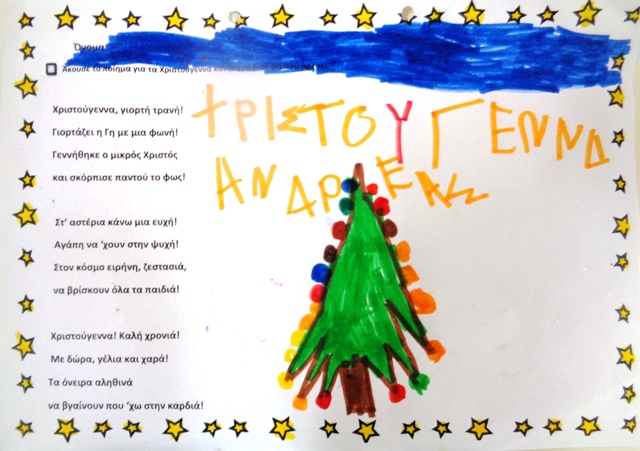 Όνομα:
Άκουσε το ποίημα για τα Χριστούγεννα
ΧΡΙΣΤΟΥΓΕΝΝΑ
ΑΝΔΡΕΑΣ
Χριστούγεννα, γιορτή τρανή!
Γιορτάζει η Γη με μια φωνή!
Γεννήθηκε ο μικρός Χριστός
και σκόρπισε παντού το φως!
Στ’ αστέρια κάνω μια ευχή!
Αγάπη να ‘χουν στην ψυχή!
Στον κόσμο ειρήνη, ζεστασιά,
να βρίσκουν όλα τα παιδιά!
Χριστούγεννα! Καλή χρονιά!
Με δώρα, γέλια και χαρά!
Τα όνειρα αληθινά
να βγαίνουν που ‘χω στην καρδιά!